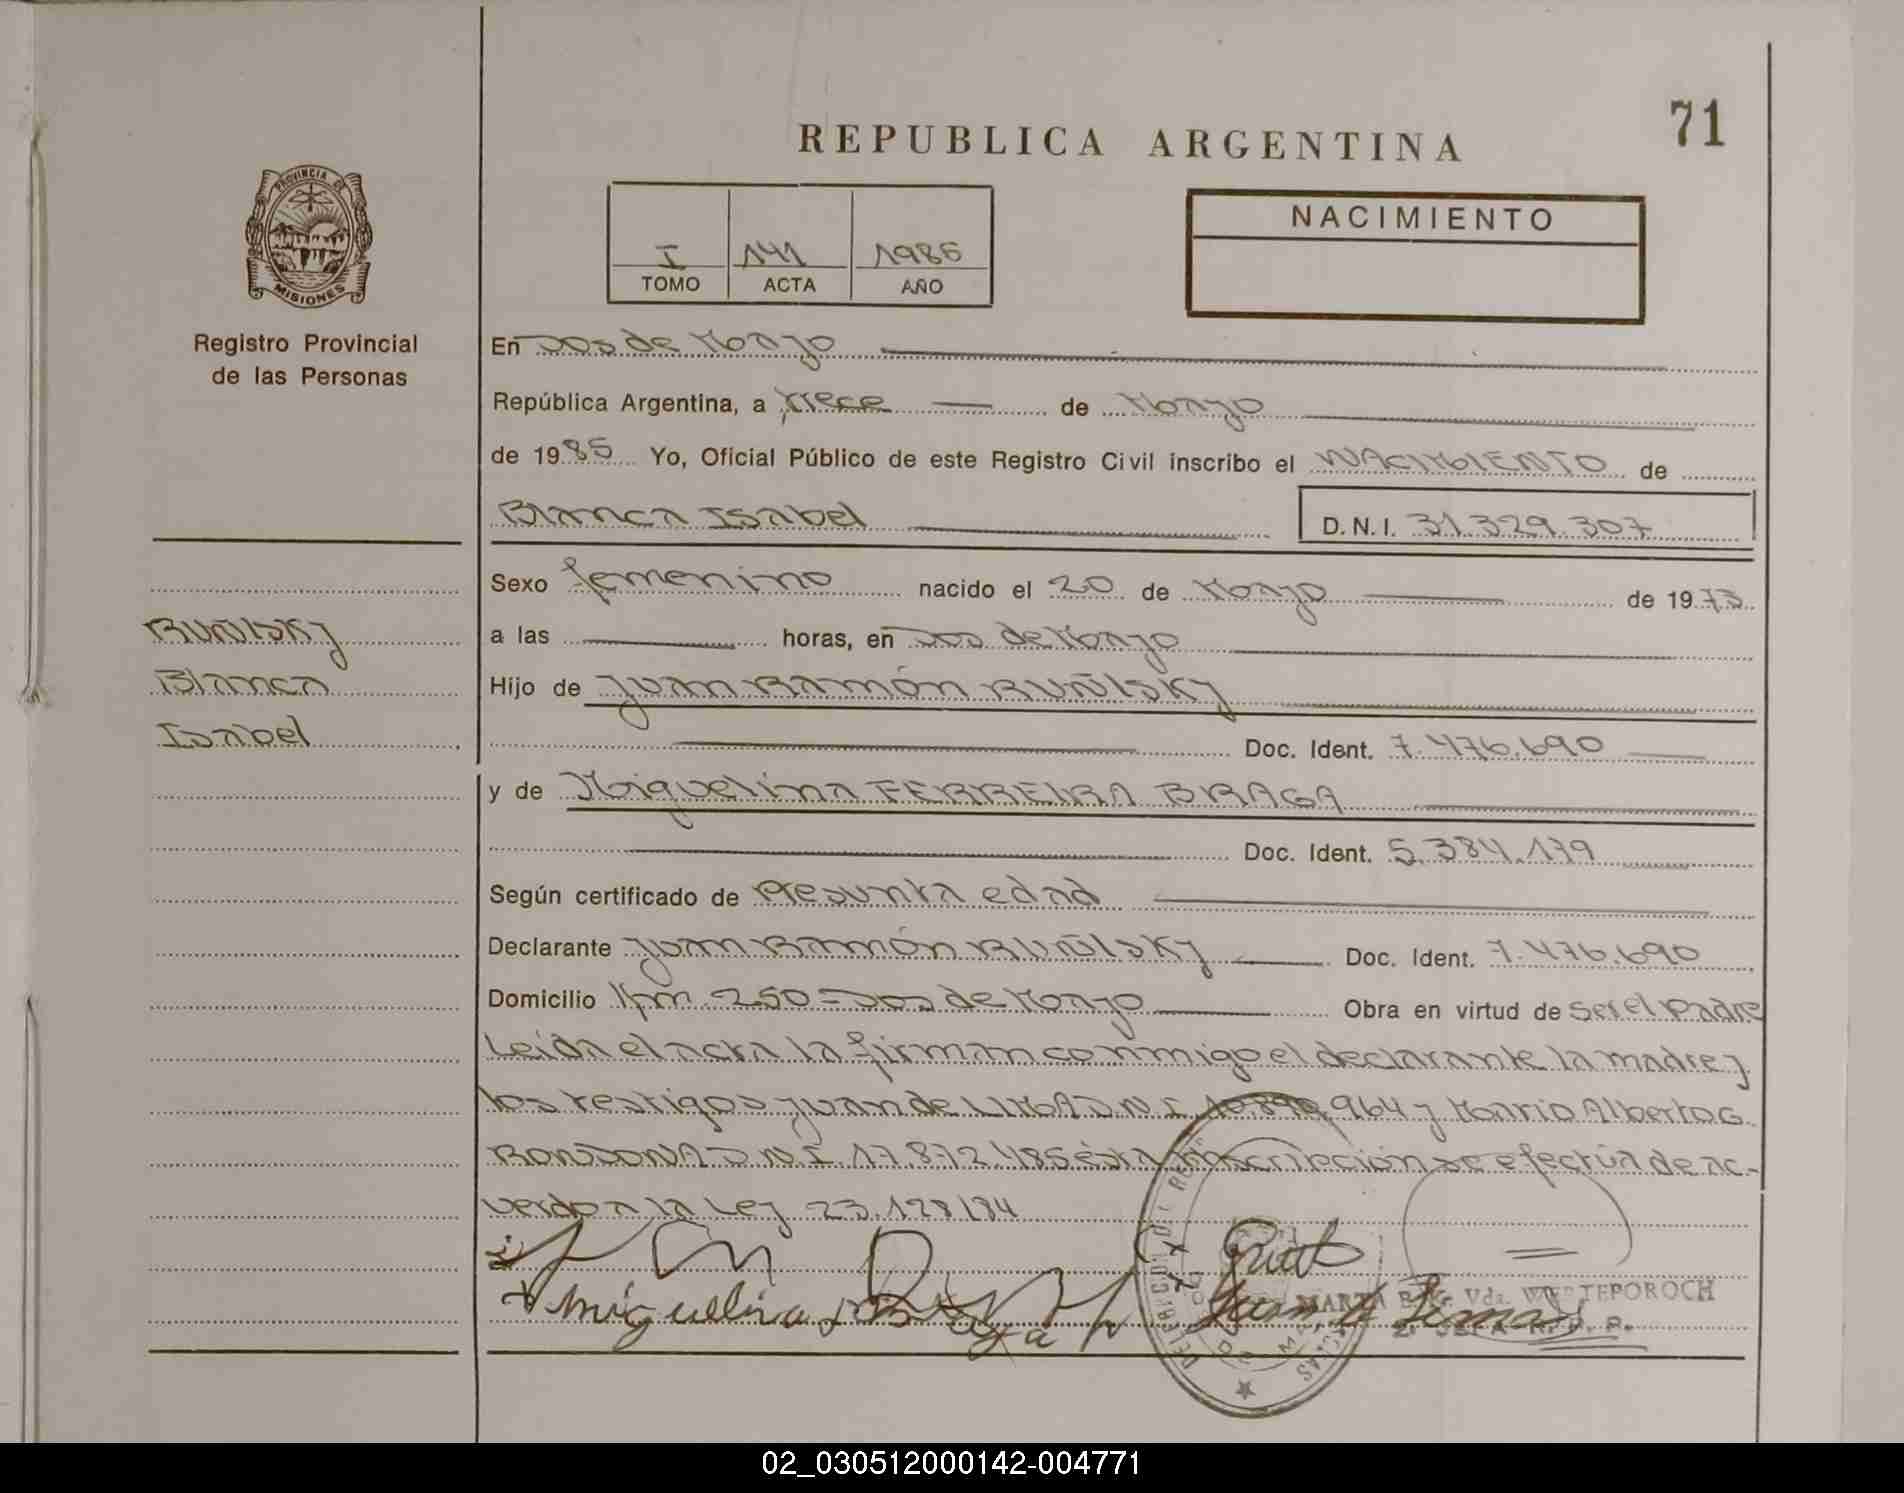 71
REPUBLICA ARGENTINA
PROVINCIA DE
MISIONES
Registro Provincial
de las Personas
I 141 1985
TOMO ACTA AÑO
NACIMIENTO
En Dos de Mayo
República Argentina, a trece de Mayo
de 1985 Yo, Oficial Público de este Registro Civil inscribo el NACIMIENTO de
Blanca Isabel D.N.I. 31.329.307
Sexo femenino nacido el 20 de Mayo de 1973
Ruñisky
Blanca
Isabel
a las horas, en Dos de Mayo
Hijo de Juan Ramón Ruñisky
Doc. Ident. 7.476.690
y de Miguelina FERREIRA BRAGA
Doc. Ident. 5.384.179
Según certificado de Presunta edad
Declarante Juan Ramón Ruñisky Doc. Ident. 7.476.690
Domicilio Km 250 = Dos de Mayo Obra en virtud de ser el padre
Leída el acta la firman conmigo el declarante la madre y
los testigos Juan de LIMA D.N.I. 964 y Mario Alberto G.
D.N.I. 17.872.485 ésta inscripción se efectúa de ac-
uerdo a la Ley 23.128/84
Miguelina Braga
MARTA Vda.
02_030512000142-004771